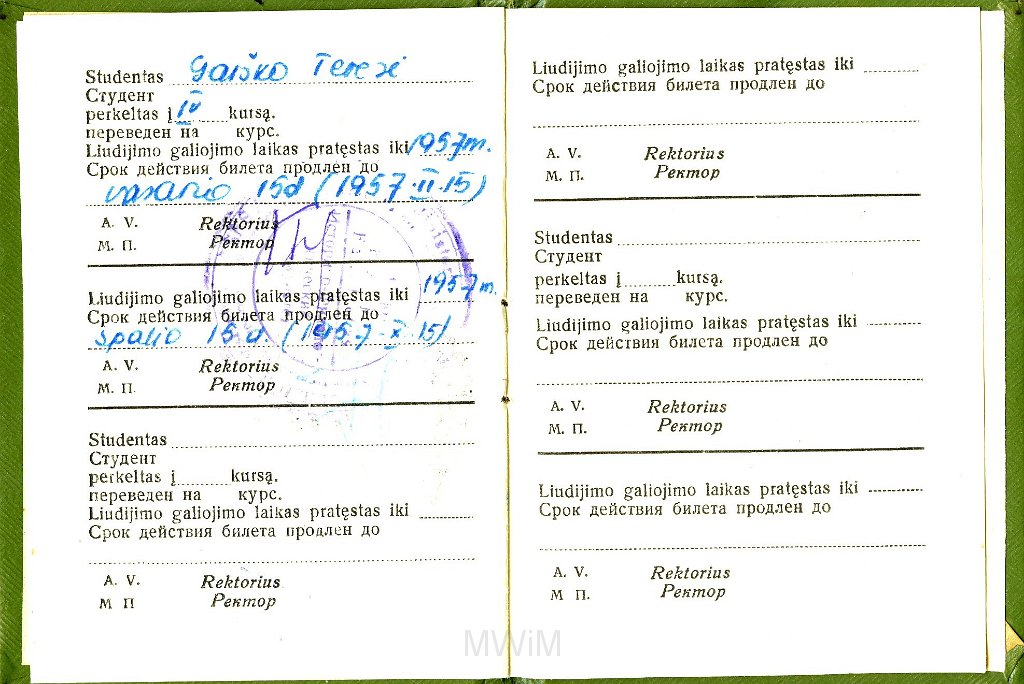 Studentas Garško Teresė
Студент
perkeltas į IV kursą.
переведен на курс.
Liudijimo galiojimo laikas pratęstas iki 1957 m.
Срок действия билета продлен до
vasario 15d (1957.II.15)
A. V. Rektorius
М. П. Ректор
Liudijimo galiojimo laikas pratęstas iki 1957 m.
Срок действия билета продлен до
spalio 15 d. (1957.X.15)
A. V. Rektorius
М. П. Ректор
Studentas
Студент
perkeltas į kursą.
переведен на курс.
Liudijimo galiojimo laikas pratęstas iki
Срок действия билета продлен до
A. V. Rektorius
М П Ректор
Liudijimo galiojimo laikas pratęstas iki
Срок действия билета продлен до
A. V. Rektorius
М. П. Ректор
Studentas
Студент
perkeltas į kursą.
переведен на курс.
Liudijimo galiojimo laikas pratęstas iki
Срок действия билета продлен до
A. V. Rektorius
М. П. Ректор
Liudijimo galiojimo laikas pratęstas iki
Срок действия билета продлен до
A. V. Rektorius
М П. Ректор
MWiM